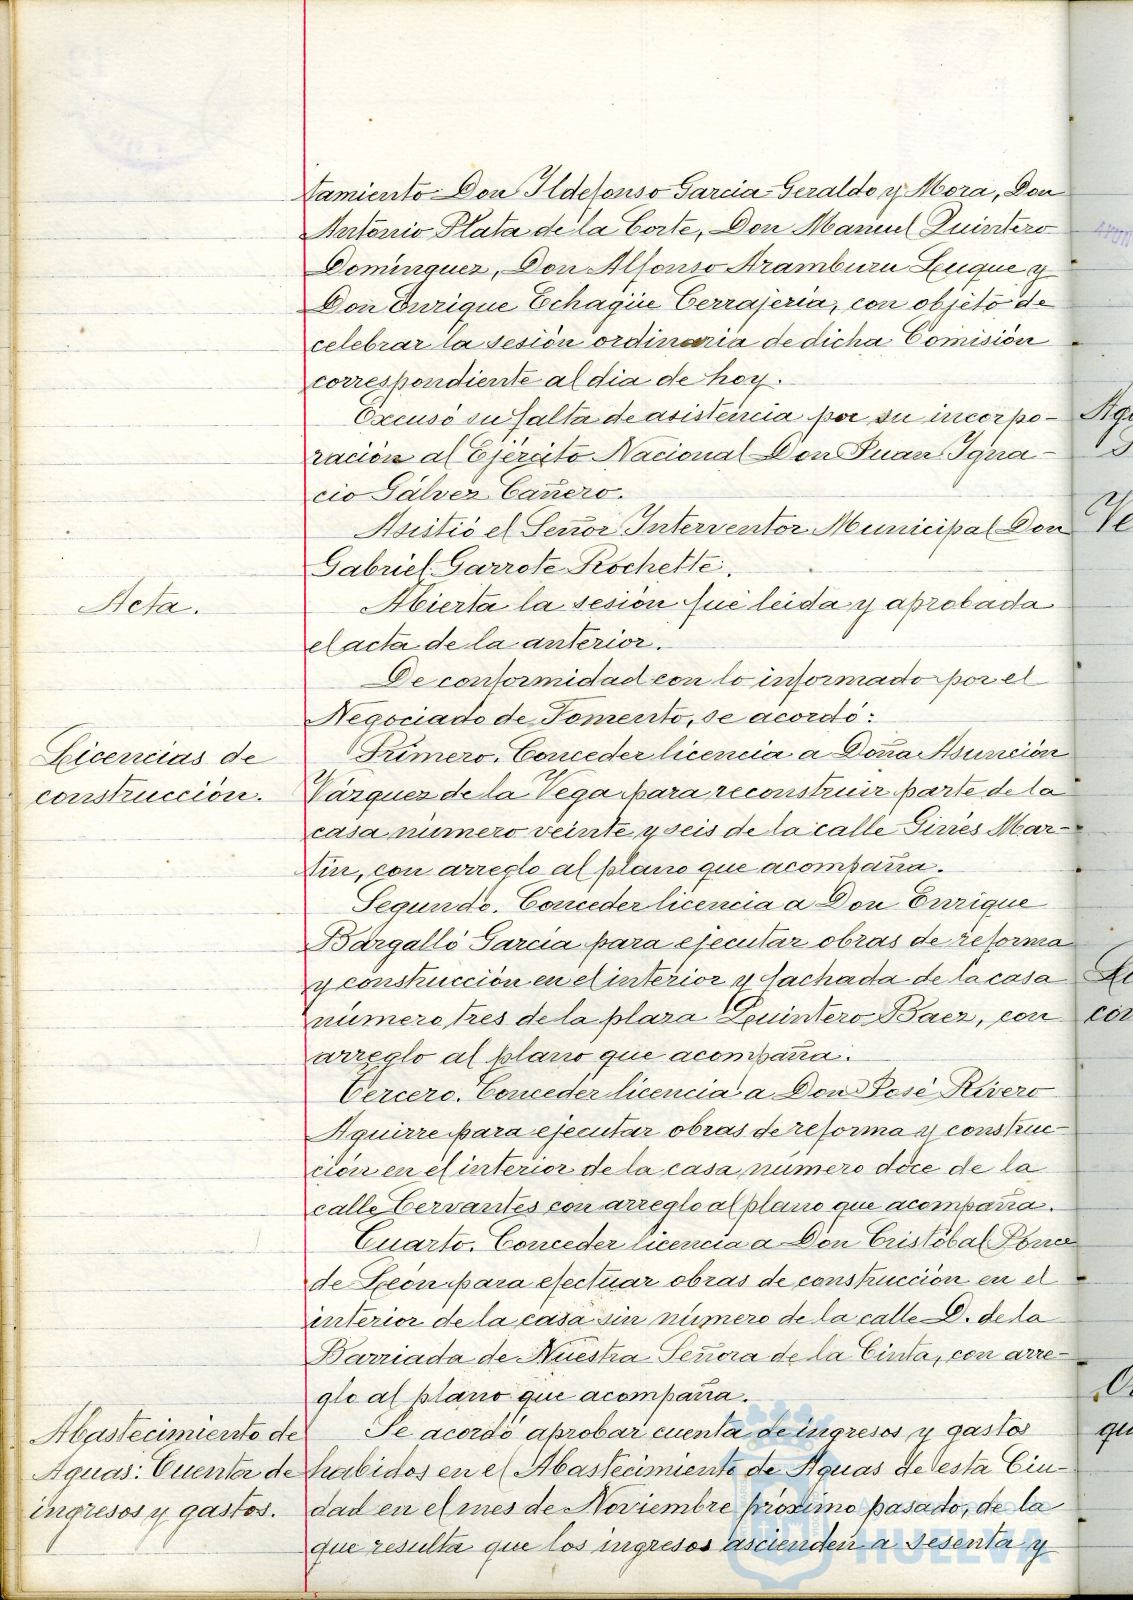 tamiento Don Ildefonso Garcia-Geraldo y Mora, Don
Antonio Plata de la Corte, Don Manuel Quintero
Domínguez, Don Alfonso Aramburu Luque y
Don Enrique Echagüe Cerrajería, con objeto de
celebrar la sesión ordinaria de dicha Comisión
correspondiente al dia de hoy.
Excusó su falta de asistencia por su incorpo-
ración al Ejército Nacional Don Juan Igna-
cio Gálvez Cañero.
Asistió el Señor Interventor Municipal Don
Gabriel Garrote Rochette.
Acta.
Abierta la sesión fué leida y aprobada
el acta de la anterior.
De conformidad con lo informado por el
Negociado de Fomento, se acordó:
Licencias de
construcción.
Primero. Conceder licencia a Doña Asunción
Vázquez de la Vega para reconstruir parte de la
casa número veinte y seis de la calle Ginés Mar-
tín, con arreglo al plano que acompaña.
Segundo. Conceder licencia a Don Enrique
Bargalló García para ejecutar obras de reforma
y construcción en el interior y fachada de la casa
número tres de la plaza Quintero Baez, con
arreglo al plano que acompaña.
Tercero. Conceder licencia a Don José Rivero
Aguirre para ejecutar obras de reforma y construc-
ción en el interior de la casa número doce de la
calle Cervantes con arreglo al plano que acompaña.
Cuarto. Conceder licencia a Don Cristóbal Ponce
de León para efectuar obras de construcción en el
interior de la casa sin número de la calle D. de la
Barriada de Nuestra Señora de la Cinta, con arre-
glo al plano que acompaña.
Abastecimiento de
Aguas: Cuenta de
ingresos y gastos.
Se acordó aprobar cuenta de ingresos y gastos
habidos en el Abastecimiento de Aguas de esta Ciu-
dad en el mes de Noviembre próximo pasado, de la
que resulta que los ingresos ascienden a sesenta y
HUELVA